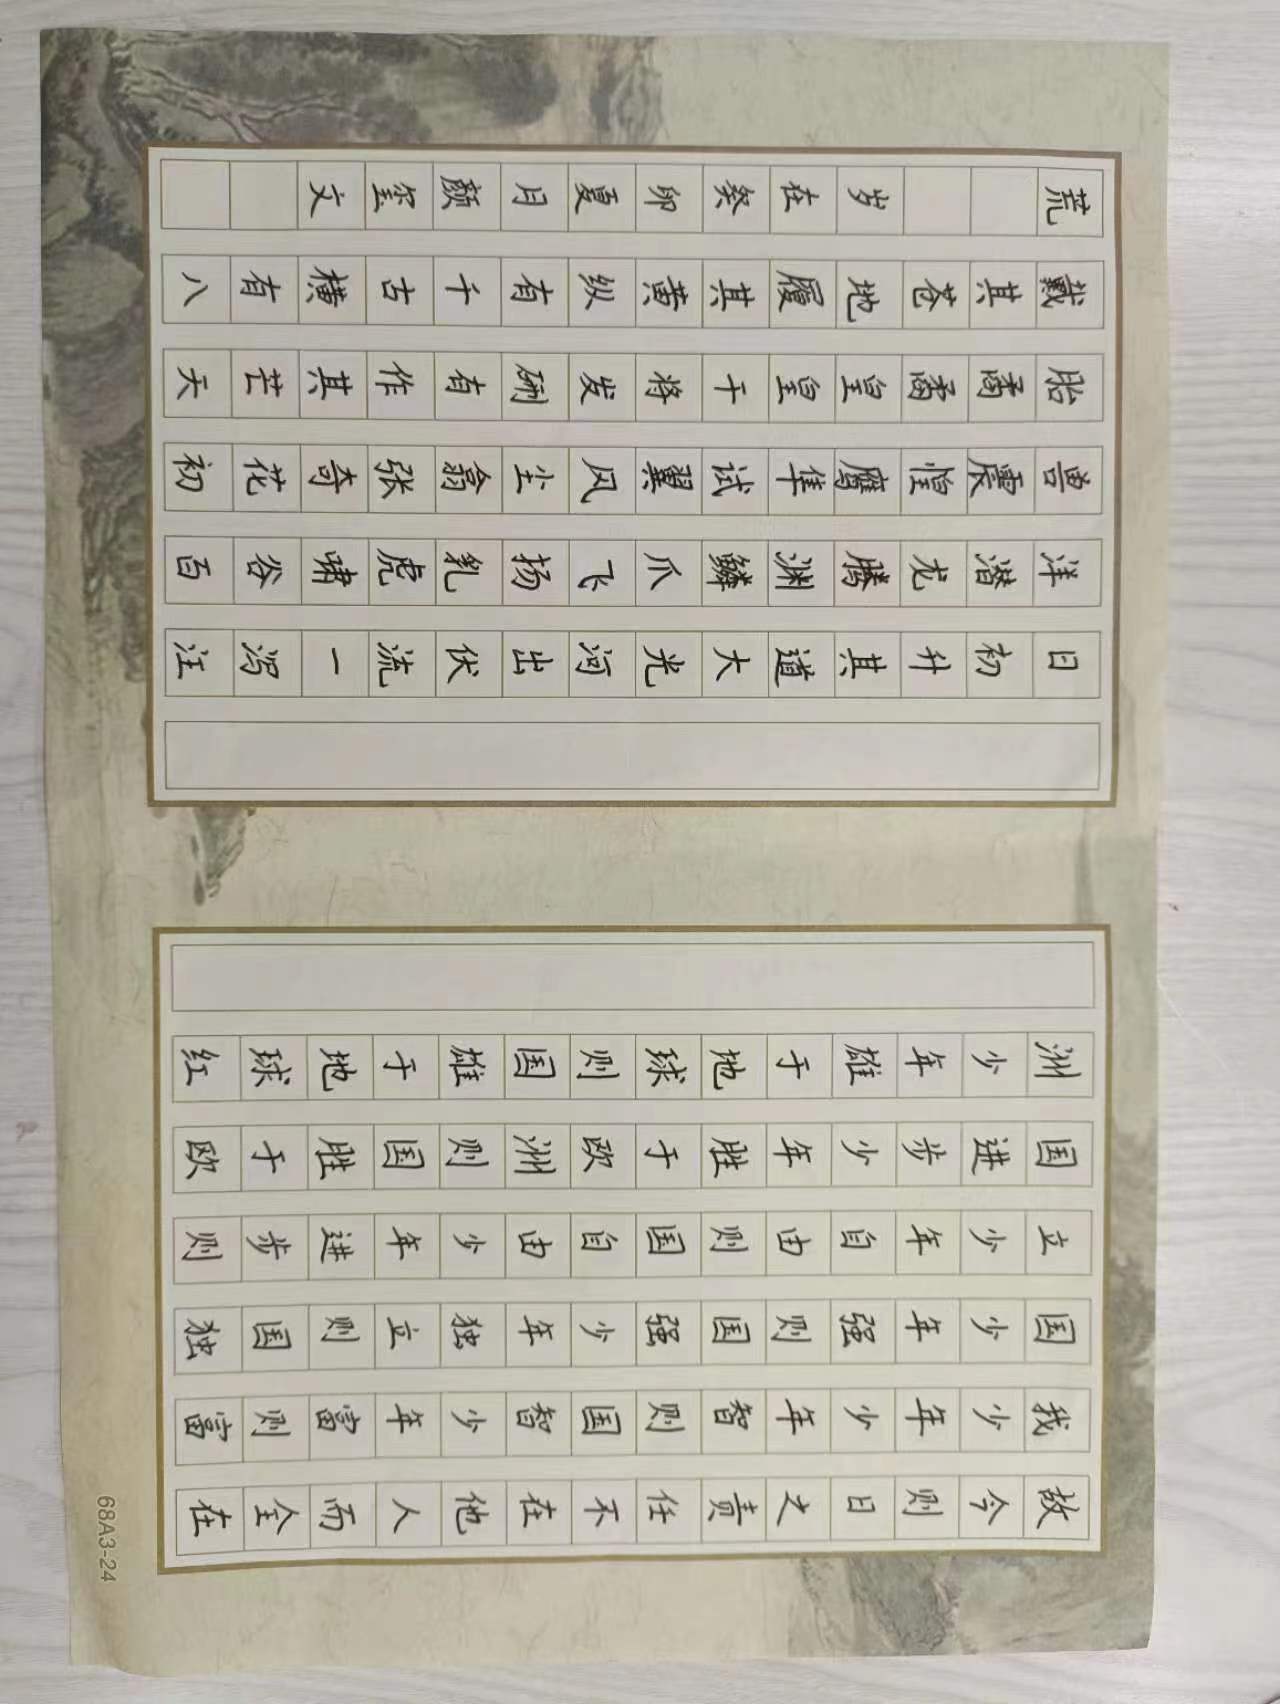 故今则日之责任不在他人而全在
我少年少年智则国智少年富则富
国少年强则国强少年独立则国独
立少年自由则国自由少年进步则
国进步少年胜于欧洲则国胜于欧
洲少年雄于地球则国雄于地球红
日初升其道大光河出伏流一泻汪
洋潜龙腾渊鳞爪飞扬乳虎啸谷百
兽震惶鹰隼试翼风尘翕张奇花初
胎矞矞皇皇干将发硎有作其芒天
戴其苍地履其黄纵有千古横有八
荒 岁在癸卯夏月颜玺文
68A3-24